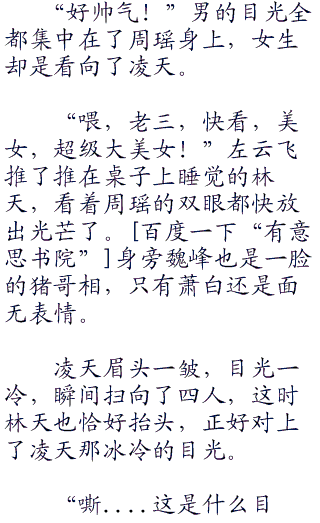 “好帅气！”男的目光全
都集中在了周瑶身上，女生
却是看向了凌天。
“喂，老三，快看，美
女，超级大美女！”左云飞
推了推在桌子上睡觉的林
天，看着周瑶的双眼都快放
出光芒了。[百度一下“有意
思书院”]身旁魏峰也是一脸
的猪哥相，只有萧白还是面
无表情。
凌天眉头一皱，目光一
冷，瞬间扫向了四人，这时
林天也恰好抬头，正好对上
了凌天那冰冷的目光。
“嘶....这是什么目